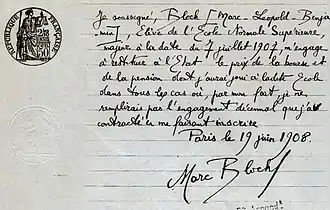 Je soussigné, Bloch [Marc-Léopold-Benja-
min], Elève de l'Ecole Normale Supérieure,
majeur à la date du 7 juillet 1907, m'engage
à restituer à l'Etat le prix de la bourse et
de la pension dont j'aurai joui à ladite Ecole
dans tous les cas où, par une faut, je ne
remplirais pas l'engagement décennal que j'ai
contracté en me faisant inscrire
Paris le 19 juin 1908.
Marc Bloch